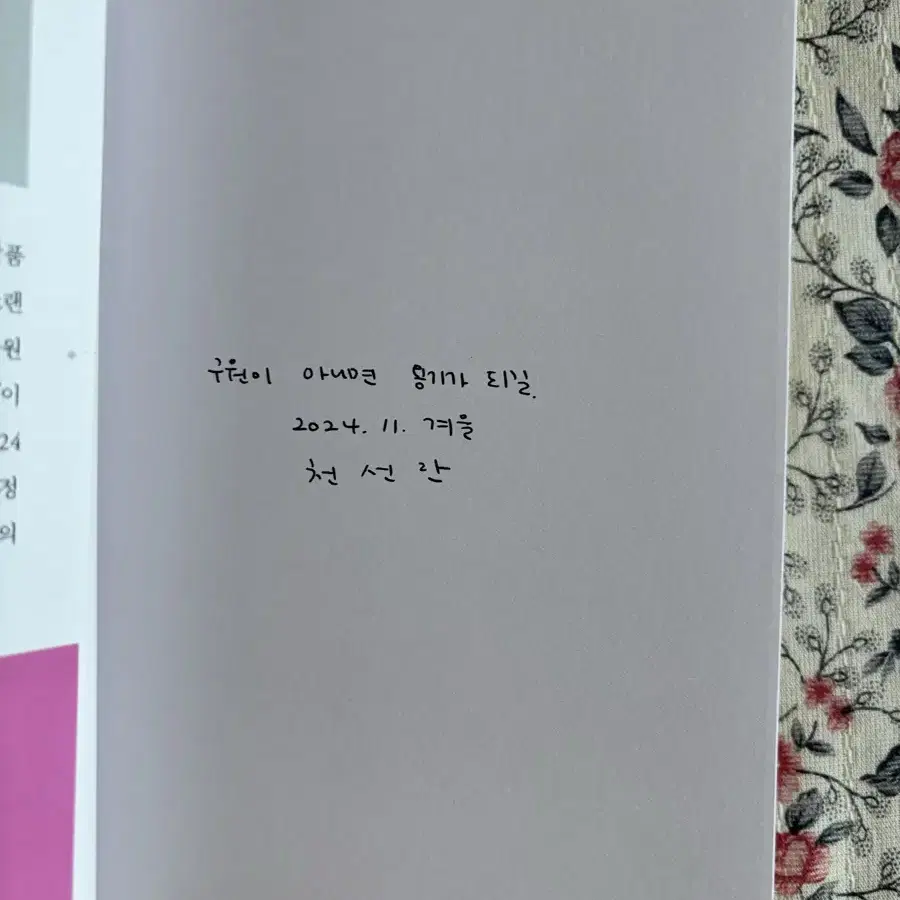 품
랜
원
이
24
정
의
구원이 아니면 용기가 되길.
2024. 11. 겨울
천 선 란